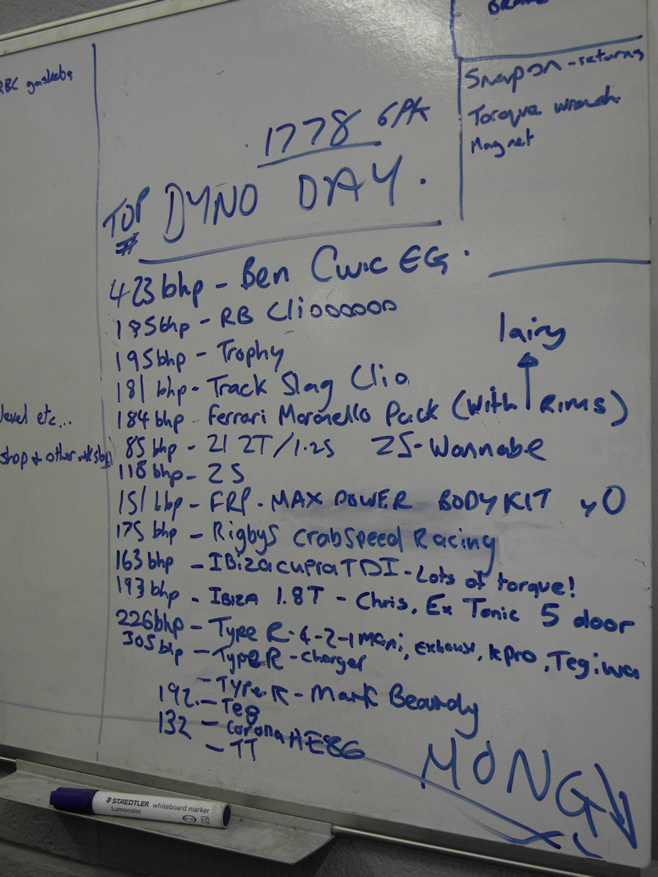 BRAKE
RBC gaskets
Snapon - returns
Torque wrench
Magnet
1778 6PK
TOP DYNO DAY.
#
423 bhp - Ben Civic EG.
185bhp - RB Cliooooooo
195bhp - Trophy
lairy
181 bhp - Track Slag Clio
184bhp - Ferrari Moronello Pack (with ↑ Rims)
level etc...
85bhp - 21 2T/1.2S ZS-Wannabe
shop & other
118bhp - ZS
151 bhp - FRP - MAX POWER BODYKIT yO
175 bhp - Rigbys crabspeed Racing
163bhp - IBiza cupra TDI - Lots of torque!
193bhp - IBIZA 1.8T - Chris, Ex Tonic 5 door
226bhp - Type R - 4-2-1 Mani, exhaust, kpro, Tegiwa
305bhp - Type R - Charger
- Type R - Mark Beardy
192 - Teg
132 - Corona AE86
- TT
MONG
STAEDTLER whiteboard marker
Lumocolor